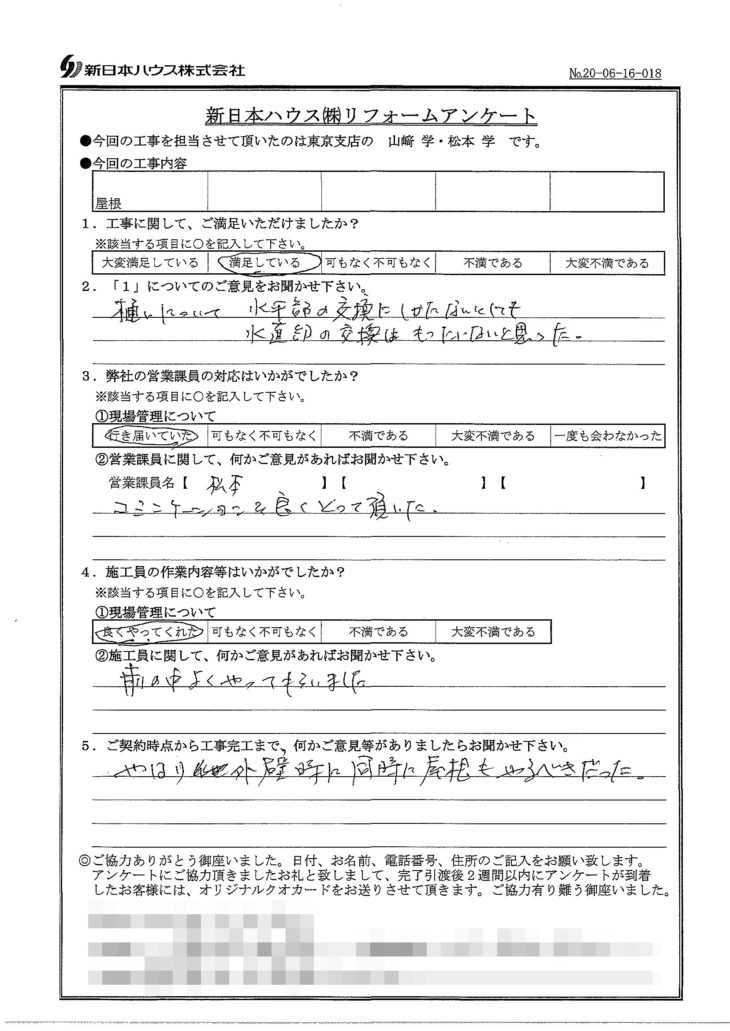 新日本ハウス株式会社
No.20-06-16-018
新日本ハウス㈱リフォームアンケート
●今回の工事を担当させて頂いたのは東京支店の 山﨑 学・松本 学 です。
●今回の工事内容
屋根
1．工事に関して、ご満足いただけましたか？
※該当する項目に○を記入して下さい。
大変満足している 満足している 可もなく不可もなく 不満である 大変不満である
2．「1」についてのご意見をお聞かせ下さい。
樋いについて 水平部の交換にしかたないにしても
水直部の交換はもったいないと思った。
3．弊社の営業課員の対応はいかがでしたか？
※該当する項目に○を記入して下さい。
①現場管理について
行き届いていた 可もなく不可もなく 不満である 大変不満である 一度も会わなかった
②営業課員に関して、何かご意見があればお聞かせ下さい。
営業課員名【 松本 】【 】【 】
コミニケーションを良くとって頂いた。
4．施工員の作業内容等はいかがでしたか？
※該当する項目に○を記入して下さい。
①現場管理について
良くやってくれた 可もなく不可もなく 不満である 大変不満である
②施工員に関して、何かご意見があればお聞かせ下さい。
中よくやってもらいました
5．ご契約時点から工事完工まで、何かご意見等がありましたらお聞かせ下さい。
やはり 外壁時に同時に屋根もやるべきだった。
◎ご協力ありがとう御座いました。日付、お名前、電話番号、住所のご記入をお願い致します。
アンケートにご協力頂きましたお礼と致しまして、完了引渡後２週間以内にアンケートが到着
したお客様には、オリジナルクオカードをお送りさせて頂きます。ご協力有り難う御座いました。